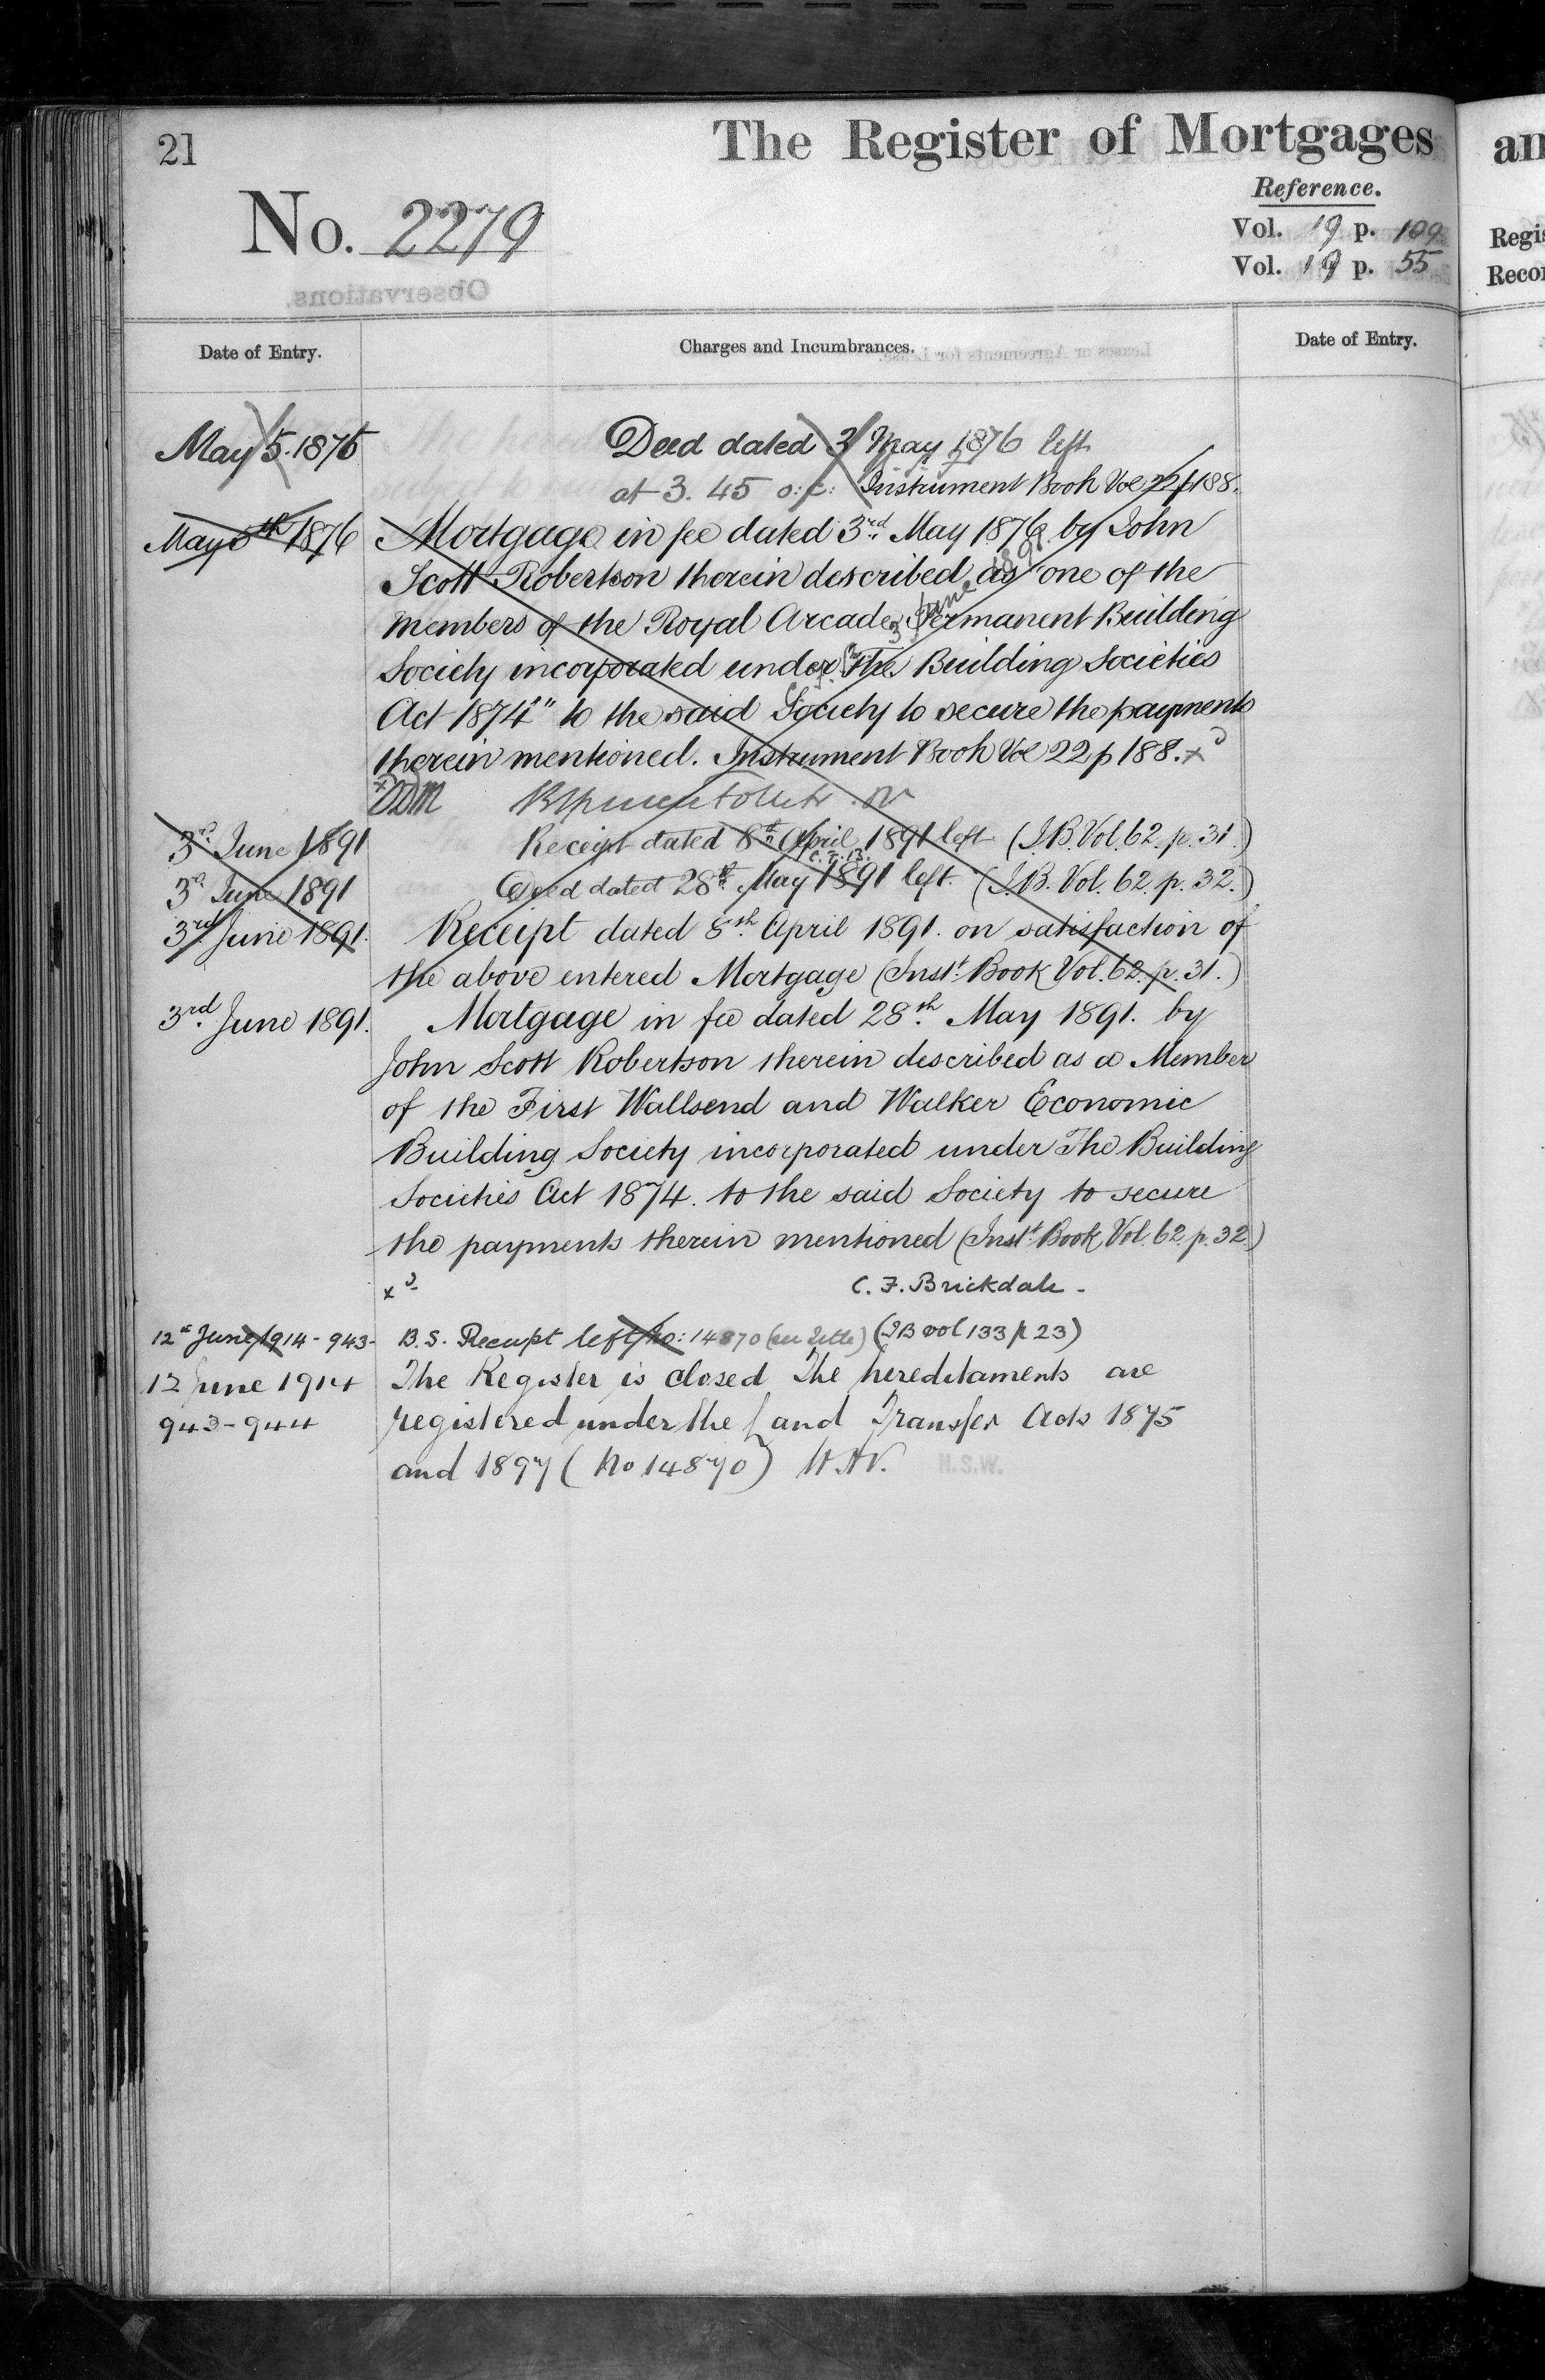 21
The Register of Mortgages
an
Reference.
No. 2279
Vol. 19 p. 109
Vol. 19 p. 55
Regis
Recor
Observations.
Date of Entry.
Charges and Incumbrances.
Leases or Agreements for Lease.
Date of Entry.
May 5. 1876
Deed dated 3 May 1876 left
at 3. 45 o:c: Instrument Book Vol 22 p 188.
May 5th 1876
Mortgage in fee dated 3rd May 1876 by John
Scott Robertson therein described as one of the
Members of the Royal Arcade Permanent Building
Society incorporated under "The Building Societies
Act 1874" to the said Society to secure the payments
therein mentioned. Instrument Book Vol 22 p 188. x
3 June 1891
3d June 1891
Receipt dated 8th April 1891 left (I.B. Vol. 62. p. 31.)
C.F.B.
3d June 1891
Deed dated 28th May 1891 left. (I.B. Vol. 62. p. 32.)
3rd June 1891.
Receipt dated 8th April 1891. on satisfaction of
the above entered Mortgage (Inst. Book Vol. 62. p. 31.)
3rd June 1891.
Mortgage in fee dated 28th May 1891. by
John Scott Robertson therein described as a Member
of the First Wallsend and Walker Economic
Building Society incorporated under The Building
Societies Act 1874. to the said Society to secure
the payments therein mentioned (Inst. Book Vol. 62. p. 32.)
x
C. F. Brickdale -
12th June 1914 - 943 -
B.S. Receipt left No: 14870 (see title) (IB vol 133 p 23)
12 June 1914
The Register is closed The hereditaments are
943 - 944
registered under the Land Transfer Acts 1875
and 1897 (No 14870)
H.S.W.